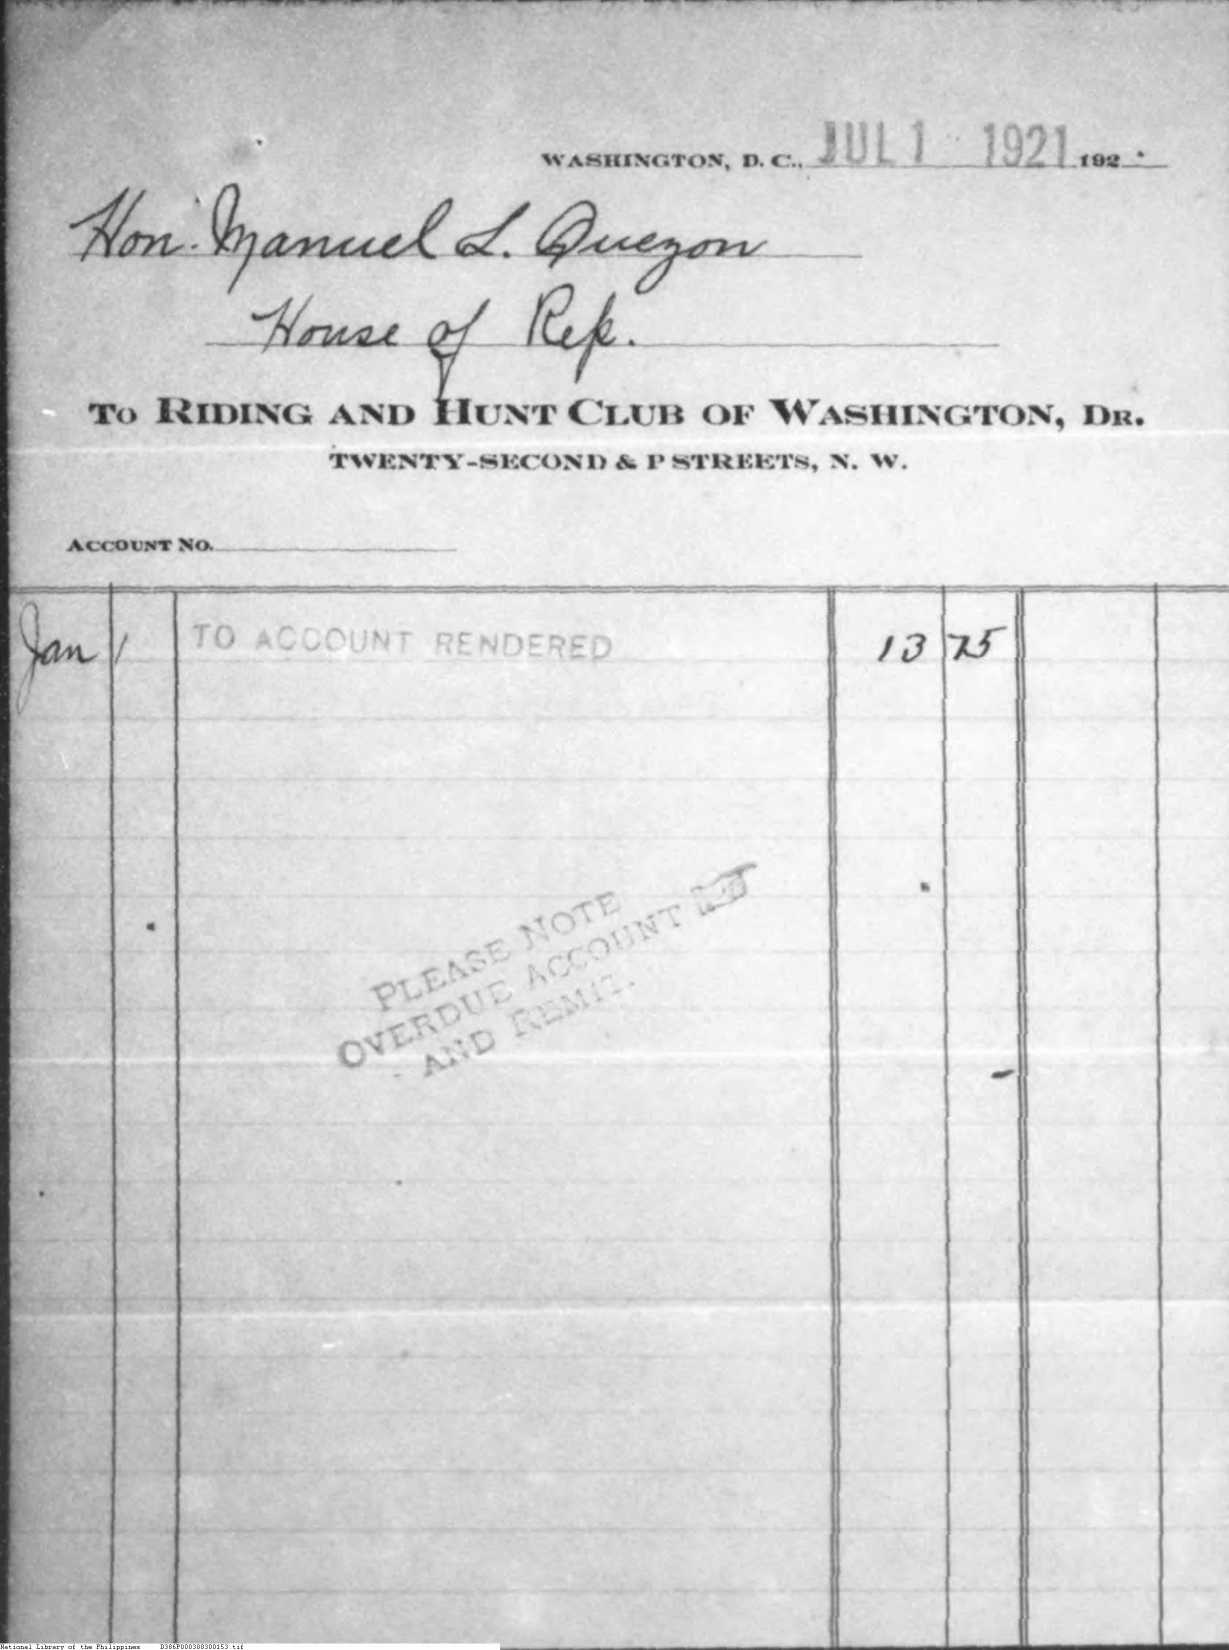 WASHINGTON, D. C., JUL 1 1921 192
Hon. Manuel L. Quezon
House of Rep.
TO RIDING AND HUNT CLUB OF WASHINGTON, DR.
TWENTY-SECOND & P STREETS, N. W.
ACCOUNT NO.
Jan 1 TO ACCOUNT RENDERED 13 75
PLEASE NOTE
OVERDUE ACCOUNT
AND REMIT.
National Library of the Philippines D386P000308300153.tif